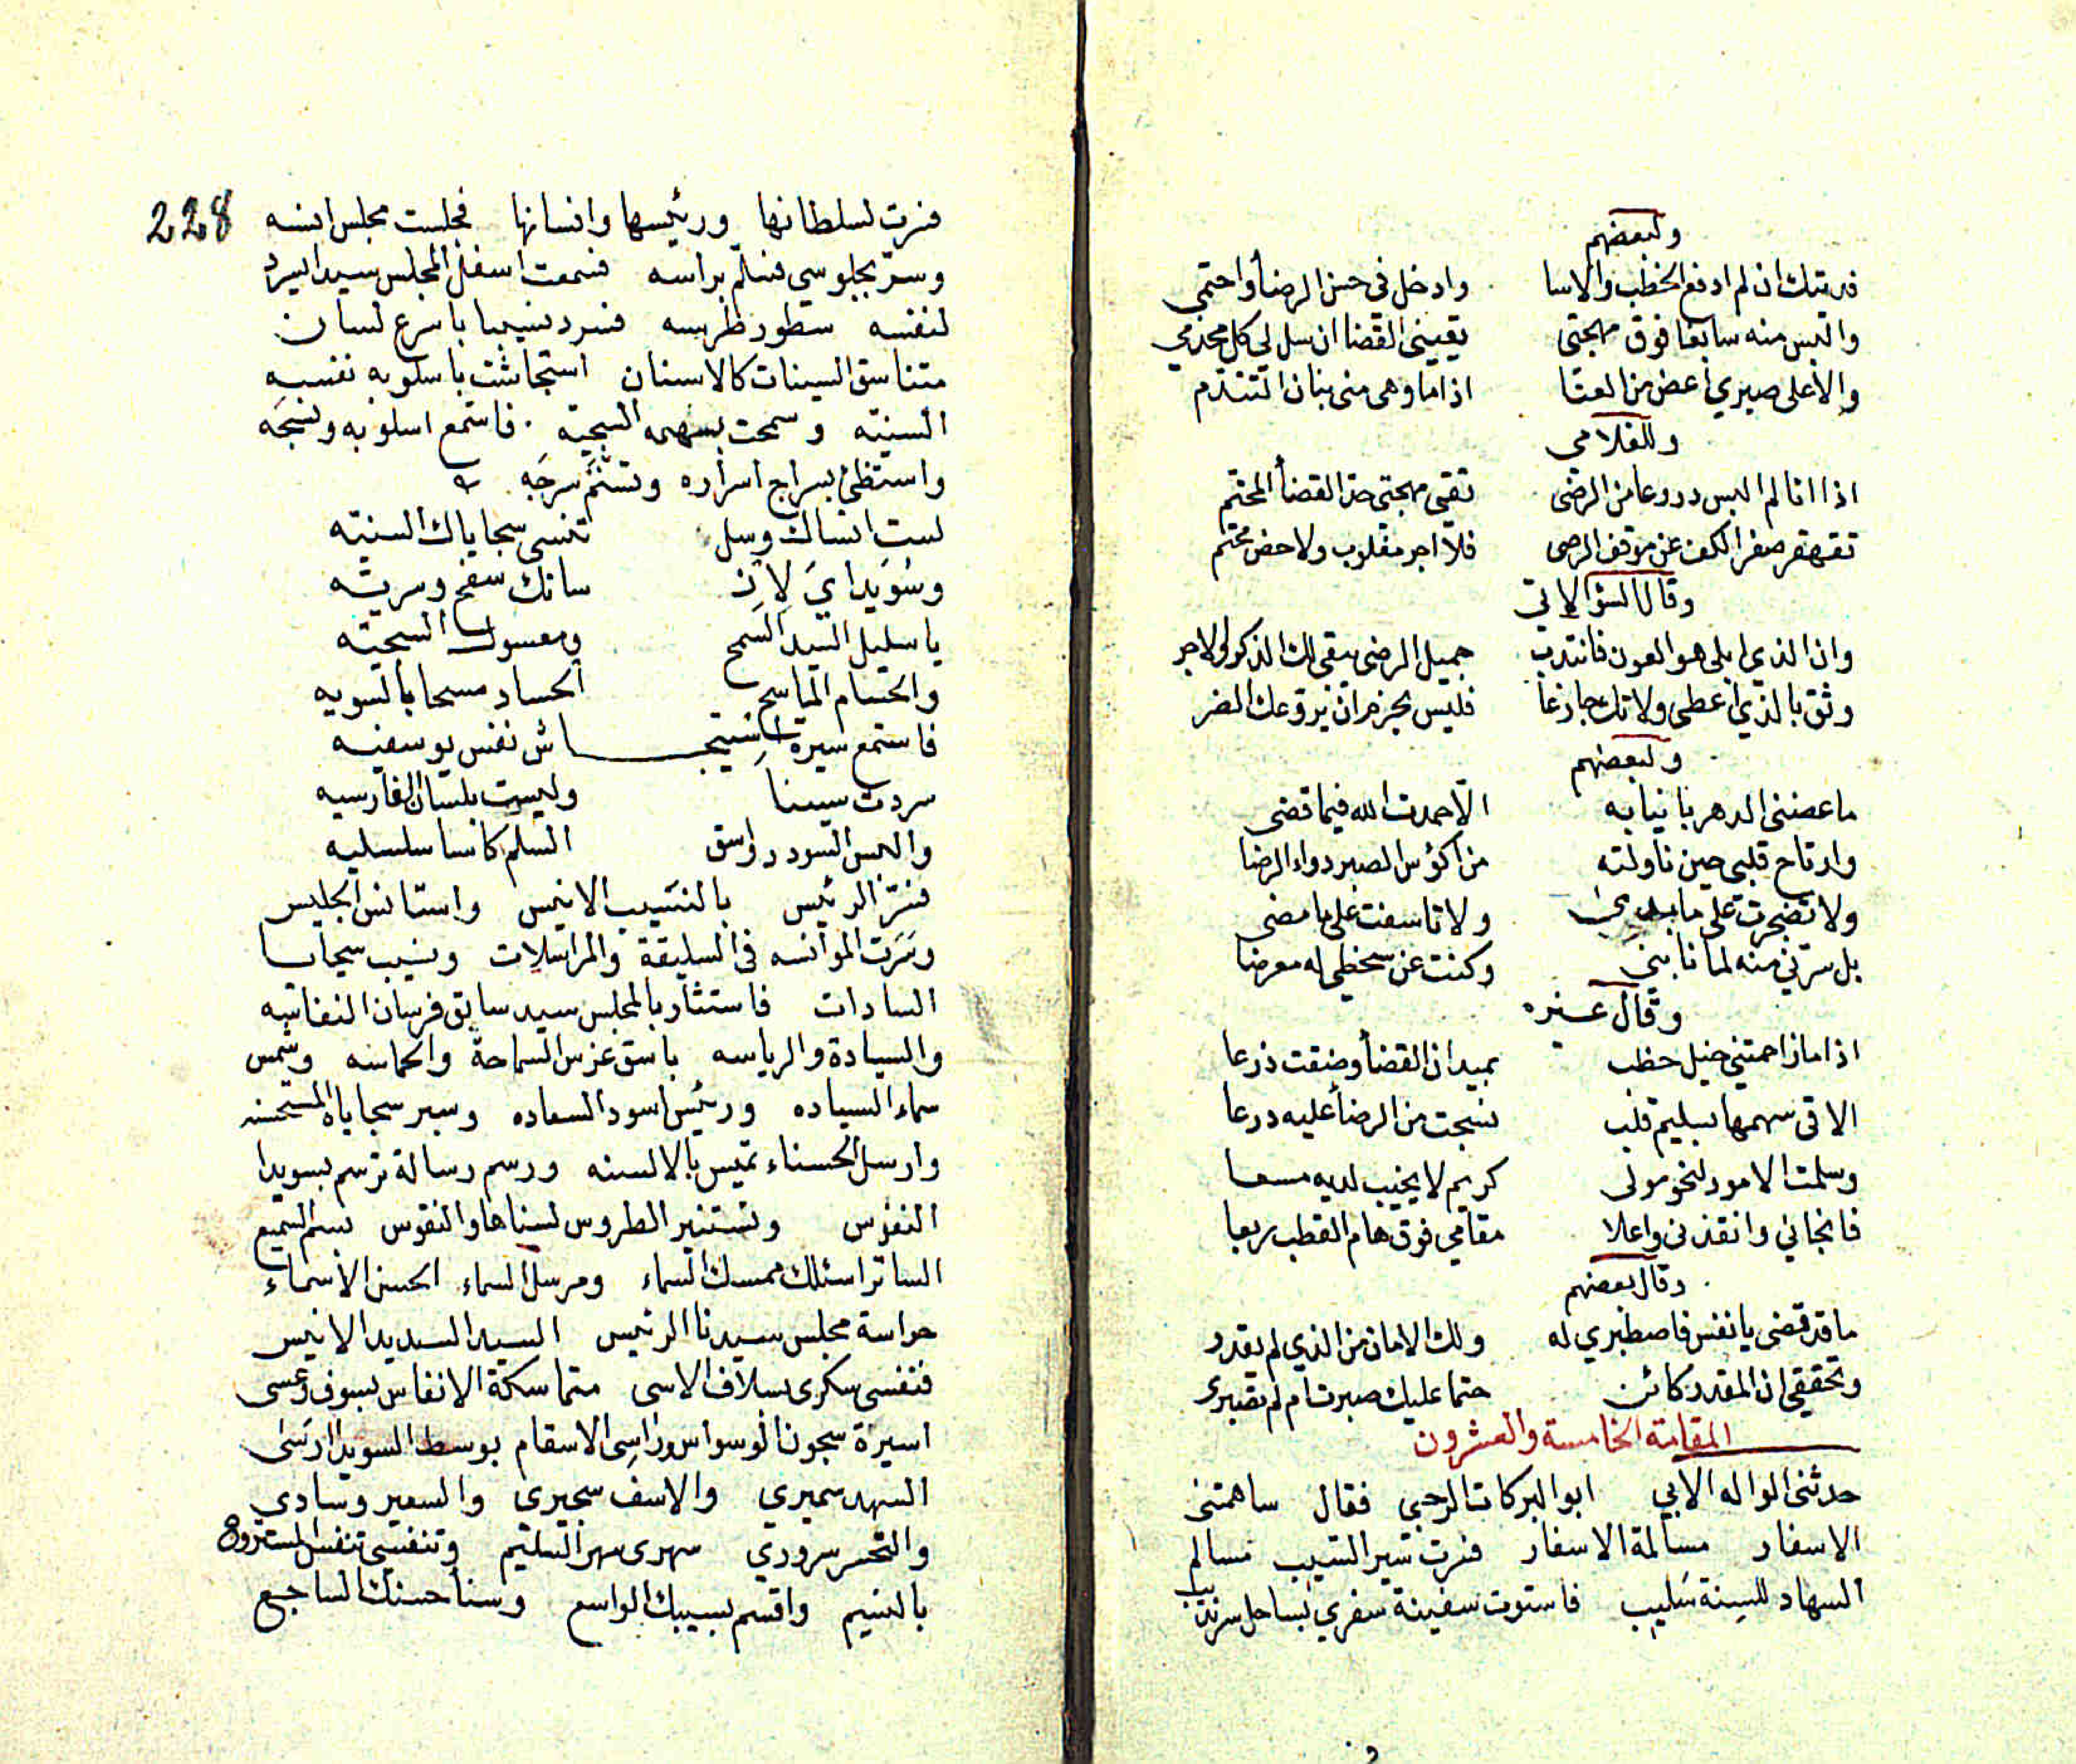 ولبعضهم
فديتك ان لم ادفع الخطب والاسا وادخل في حسن الرضا واحتمي
والبس منه سابغا فوق مهجتي يقيني القضا ان سل لي كل مخذمي
والا على صبري اعض من العتا اذا ما وهى مني بنان التندم
وللغلامي
اذا انا لم البس دروعا من الرضى تقي مهجتي حد القضا المحتم
تقهقر صفر الكف عن موقف الرضى فلا اجر مقلوب ولا حض محتم
وقال
وان الذي ابلى هو العون فانتدب جميل الرضى يبقى لك الذكر والاجر
وثق بالذي اعطى ولا تك جازعا فليس بحزم ان يروعك الضر
ولبعضهم
ما عضني الدهر بانيابه الا حمدت الله فيما قضى
وارتاح قلبي حين ناولته من اكؤس الصبر دواء الرضا
ولا تضجرت على ما ولا تاسفت على ما مضى
بل سرني منه لما نابني وكنت عن سخطي له معرضا
وقال غيره
اذا ما زاحمتني خيل خطب بميدان القضا وضقت ذرعا
الاقي سهمها بسليم قلب نسجت من الرضا عليه درعا
وسلمت الامور لنحو مولى كريم لا يخيب لديه مسعا
فانجاني وانقذني واعلا مقامي فوق هام القطب ربعا
وقال بعضهم
ما قد قضى يا نفس فاصطبري له ولك الامان من الذي لم يقدر
وتحققي ان المقدر كائن حتما عليك صبرت ام لم تصبري
المقامة الخامسة والعشرون
حدثني الواله الابي ابو البركات الرحبي فقال ساهمتني
الاسفار مسالمة الاسفار فسرت سير السيب مسالم
السهاد للسنة سليب فاستوت سفينة سفري بساحل سرنديب
228
فسرت لسلطانها ورئيسها وانسانها فجلست مجلس انسه
وسر بجلوسي فسلم براسه فسمعت اسفل المجلس سيدا يسرد
لنفسه سطور طرسه فسرد نسيبا باسرع لسان
متناسق السينات كالاسنان استجاشت باسلوبه نفسه
السنيه وسمحت بسهمه السجية فاستمع اسلوبه ونسجه
واستضئ بسراج اسراره وتسنم سرجه
لست انساك وسل تنسى سجاياك السنيه
وسويداي لان سانك سفح وسريه
يا سليل السيد السمح ومعسول السجيه
والحسام الماسح الحساد مسحا بالسويه
فاستمع سيرة استجاش نفس يوسفيه
سردت سينا وليست بلسان الفارسيه
والبس السودد واسق السلم كاسا سلسليه
فسر الرئيس بالنسيب الانيس واستانس الجليس
وسرت الموانسه في السليقة والمراسلات ونسيب سجايا
السادات فاستثار بالمجلس سيد سابق فرسان النفاسه
والسيادة والرياسه باسق غرس السماحة والحماسه وشمس
سماء السياده ورئيس اسود السعاده وسبر سجاياه المستحسنه
وارسل الحسناء تميس بالالسنه ورسم رسالة ترسم بسويدا
النفوس وتستنير الطروس لسناها والنقوس بسم السميع
الساتر اسئلك ممسك السماء ومرسل السماء الحسن الاسماء
حراسة مجلس سيدنا الرئيس السيد السديد الانيس
فنفسي سكرى بسلاف الاسى متماسكة الانفاس بسوف وعسى
اسيرة سجون الوسواس وراسي الاسقام بوسط السويدا رسى
السهد سميري والاسف سجيري والسعير وسادي
والتحسر سروري سهري سهر السليم وتنفسي تنفس المستروح
بالنسيم واقسم بسيبك الواسع وسنا حسنك الساجع